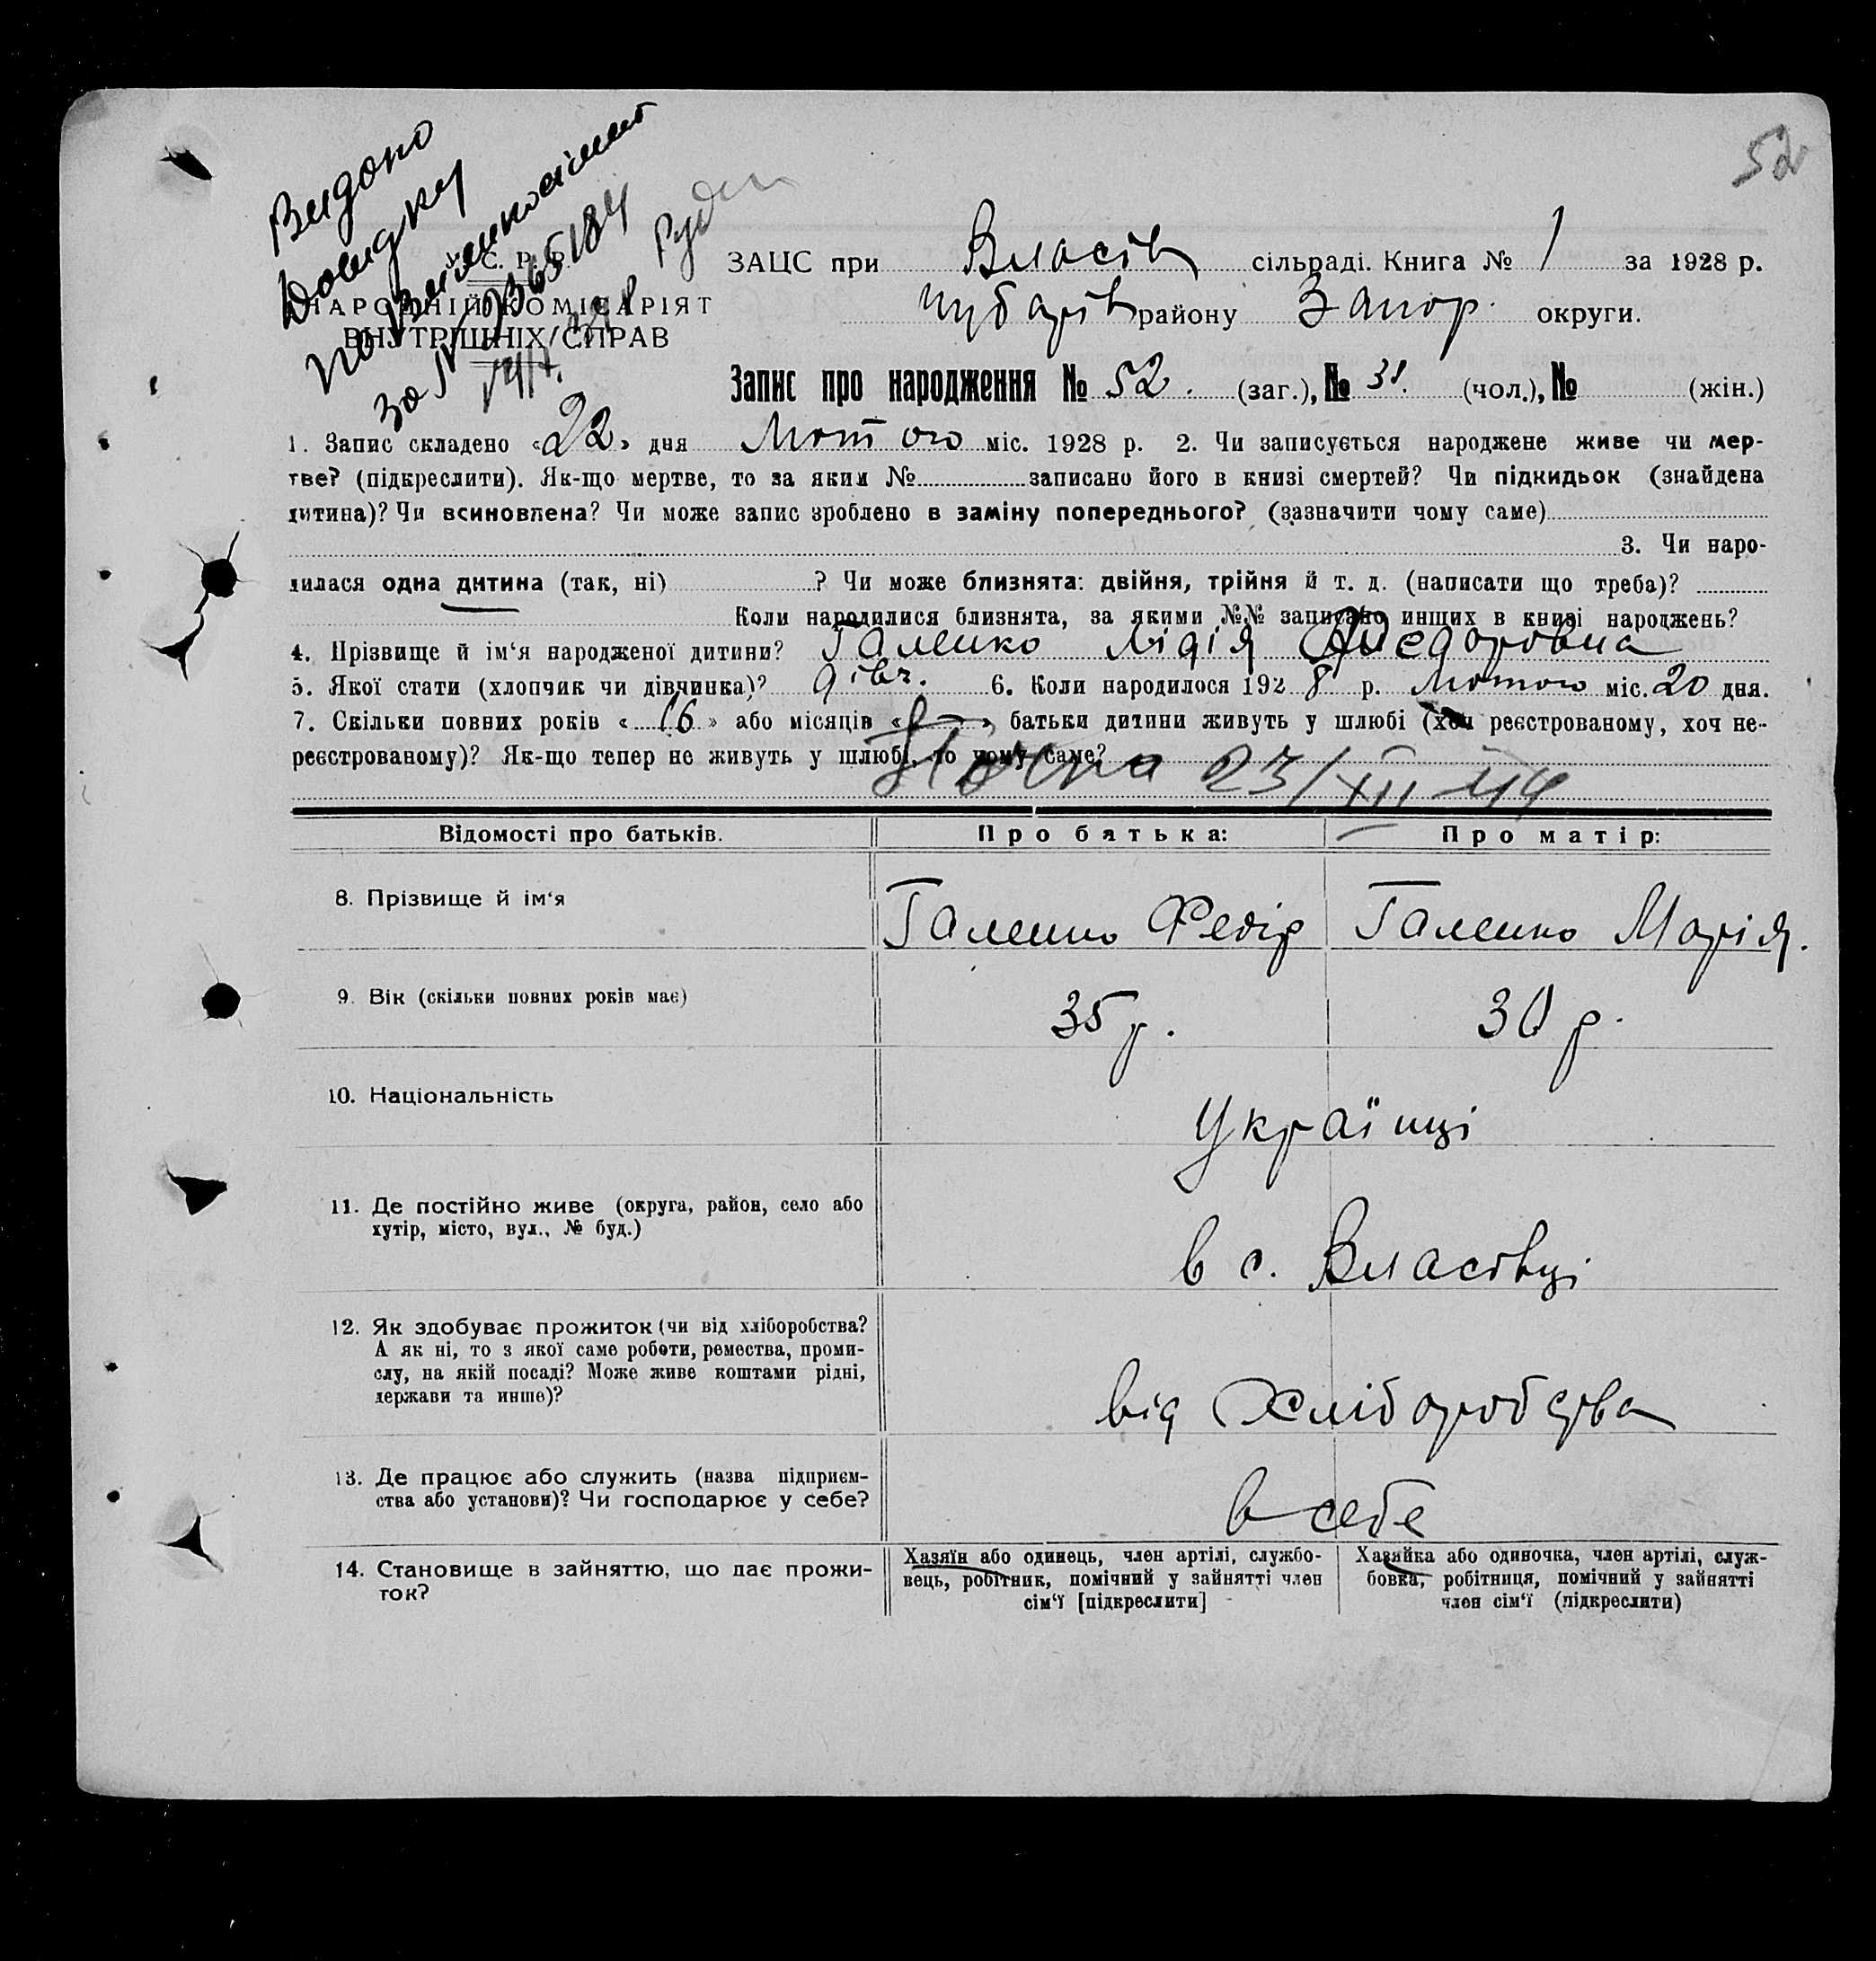 52
Видано
Довідку
по
за №
У. С. Р. Р.
НАРОДНІЙ КОМІСАРІЯТ
ВНУТРІШНІХ СПРАВ
ЗАЦС при Власів сільраді. Книга № 1 за 1928 р.
району Запор. округи.
Запис про народження № 52. (заг.), № 31. (чол.), № (жін.)
1. Запис складено «22» дня Лютого міс. 1928 р. 2. Чи записується народжене живе чи мер-
тве? (підкреслити). Як-що мертве, то за яким № записано його в книзі смертей? Чи підкидьок (знайдена
дитина)? Чи всиновлена? Чи може запис зроблено в заміну попереднього? (зазначити чому саме)
3. Чи наро-
дилася одна дитина (так, ні) ? Чи може близнята: двійня, трійня й т. д. (написати що треба)?
Коли народилися близнята, за якими №№ записано инших в книзі народжень?
4. Прізвище й ім'я народженої дитини? Галенко Лідія Федоровна
5. Якої стати (хлопчик чи дівчинка)? дівч. 6. Коли народилося 1928 р. Лютого міс. 20 дня.
7. Скільки повних років «16» або місяців «—» батьки дитини живуть у шлюбі (хоч реєстрованому, хоч не-
реєстрованому)? Як-що тепер не живуть у шлюбі, то чому саме?
23/XII-44
Відомості про батьків. Про батька: Про матір:
8. Прізвище й ім'я Галенко Федір Галенко Марія.
9. Вік (скільки повних років має) 35 р. 30 р.
10. Національність Українці
11. Де постійно живе (округа, район, село або
хутір, місто, вул., № буд.)
в с. Власівці
12. Як здобуває прожиток (чи від хліборобства?
А як ні, то з якої саме роботи, ремества, проми-
слу, на якій посаді? Може живе коштами рідні,
держави та инше)?
від Хліборобства
13. Де працює або служить (назва підприєм-
ства або установи)? Чи господарює у себе?
в себе
14. Становище в зайняттю, що дає прожи-
ток?
Хазяїн або одинець, член артілі, службо-
вець, робітник, помічний у зайнятті член
сім'ї [підкреслити]
Хазяйка або одиночка, член артілі, служ-
бовка, робітниця, помічний у зайнятті
член сім'ї (підкреслити)